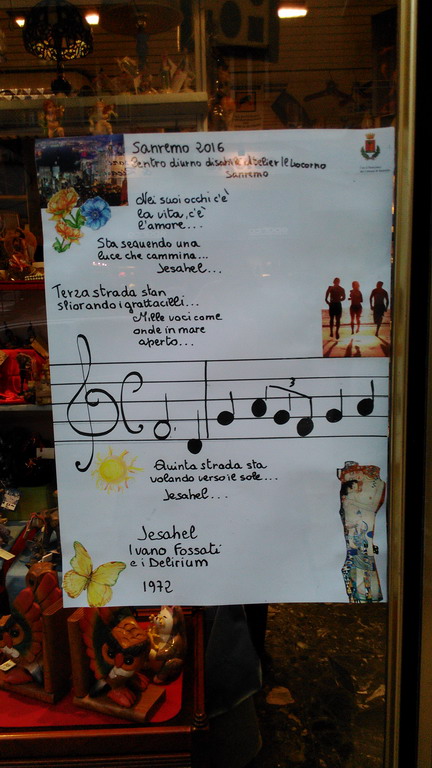 Sanremo 2016
Centro diurno disabili Atelier l'Unicorno
Sanremo
Nei suoi occhi c'è
la vita, c'è
l'amore...
Sta seguendo una
luce che cammina...
Jesahel...
Terza strada stan
sfiorando i grattacieli...
Mille voci come
onde in mare
aperto...
3
Quinta strada sta
volando verso il sole...
Jesahel...
Jesahel
Ivano Fossati
e i Delirium
1972